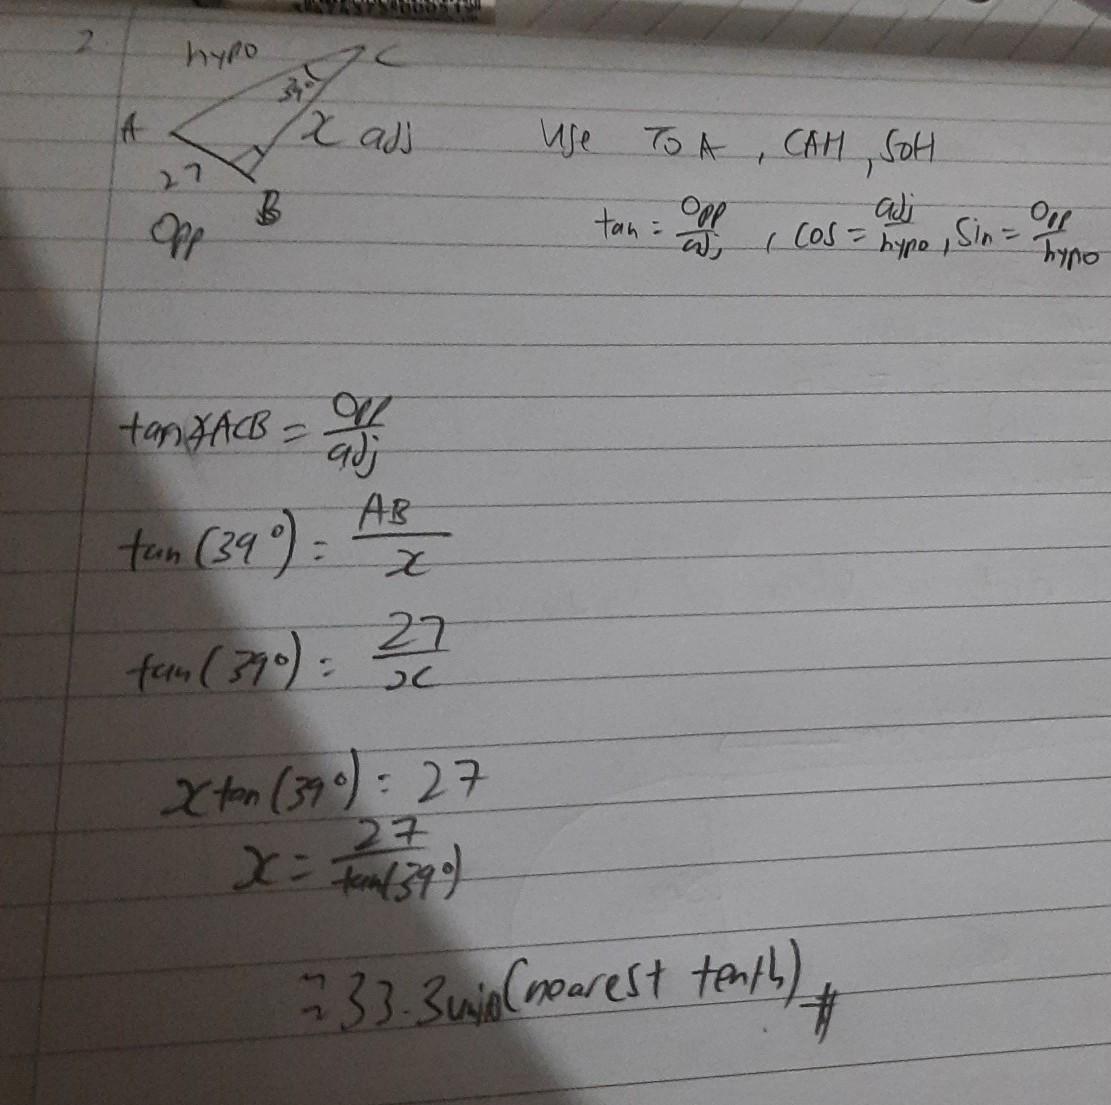 2.
hypo
C
39°
A
x adj
27
B
Opp
Use TOA, CAH, SOH
tan = Opp/adj, cos = adj/hypo, Sin = Opp/hypo
tan∡ACB = Opp/adj
tan(39°) = AB/x
tan(39°) = 27/x
x tan(39°) = 27
x = 27/tan(39°)
≈ 33.3 (nearest tenth) #